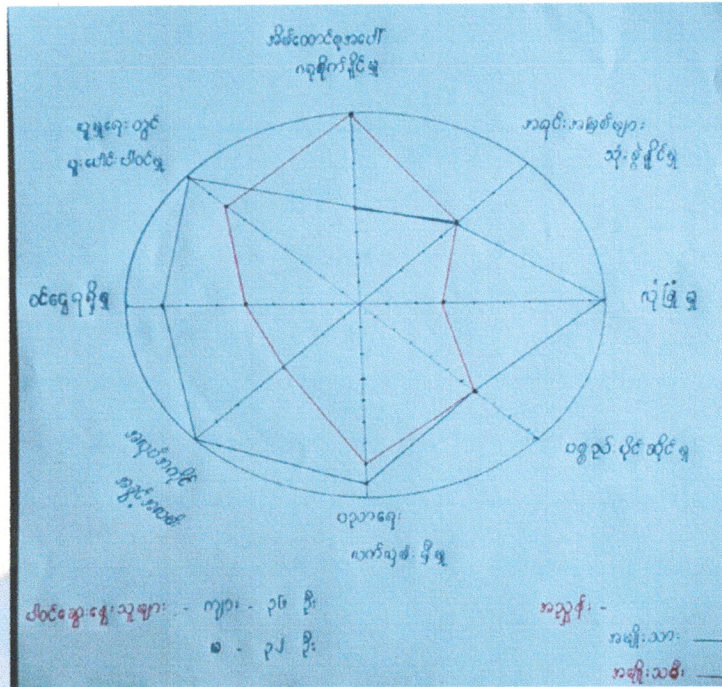 အိမ်ထောင်စုအပေါ်
ဂရုစိုက်နိုင်မှု
အရင်းအမြစ်များ
သုံးစွဲနိုင်မှု
လုံခြုံမှု
ပစ္စည်းပိုင်ဆိုင်မှု
ပညာရေး
လက်လှမ်းမှီမှု
အလုပ်အကိုင်
အခွင့်အလမ်း
ဝင်ငွေရရှိမှု
လူမှုရေးတွင်
ပူးပေါင်းပါဝင်မှု
ပါဝင်ဆွေးနွေးသူများ - ကျား - ၃၆ ဦး
မ - ၃၂ ဦး
အညွှန်း -
အမျိုးသား
အမျိုးသမီး